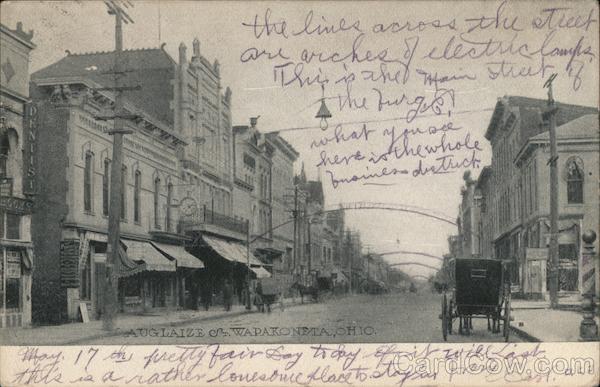 the lines across the street
are arches of electric lamps.
This is the Main Street of
the Burg.
what you see
here is the whole
business district.
DENTIST
AUGLAIZE St. WAPAKONETA, OHIO.
May. 17 th pretty fair day today if it will last
this is a rather lonesome place to stop
CardCow.com